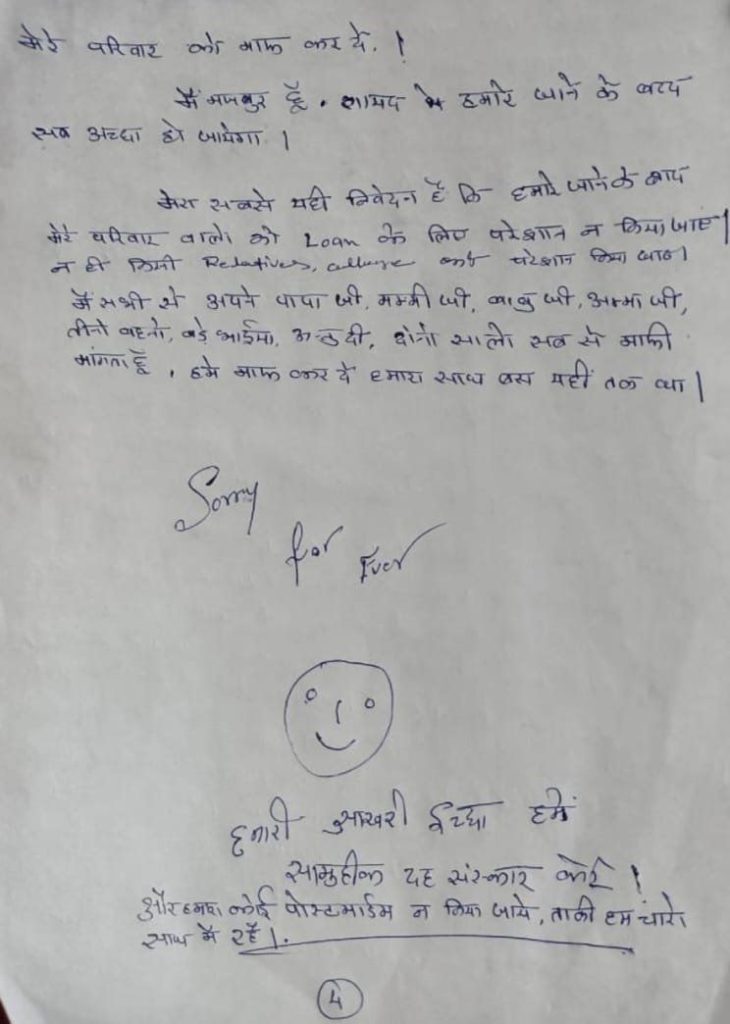 मेरे परिवार को माफ कर दे. !
मैं मजबुर हूँ . शायद हमारे जाने के बाद
सब अच्छा हो जायेगा ।
मेरा सबसे यही निवेदन है कि हमारे जाने के बाद
मेरे परिवार वालो को Loan के लिए परेशान न किया जाए ।
न ही किसी Relatives, को परेशान किया जाए ।
मैं सभी से अपने पापा जी, मम्मी जी, बाबु जी, अम्मा जी,
तीनो बहनो, बड़े भाईया, दी, दोनो सालो सब से माफी
मांगता हूँ . हमे माफ कर दे हमारा साथ बस यहीं तक था ।
Sorry
for Ever
हमारी आखरी ईच्छा हमें
सामुहीक दह संस्कार करे !
और हमारा कोई पोस्टमार्डम न किया जाये, ताकी हम चारो
साथ में रहें ।.
4